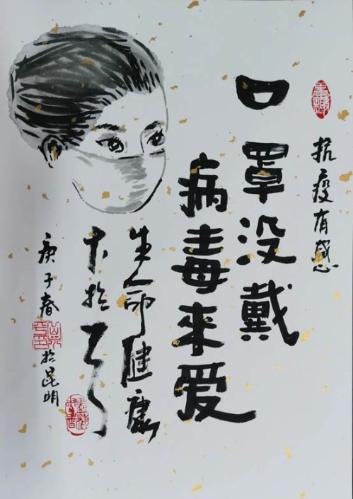 抗疫有感
口罩没戴
病毒來爱
生命健康
大於
庚子春
於昆明